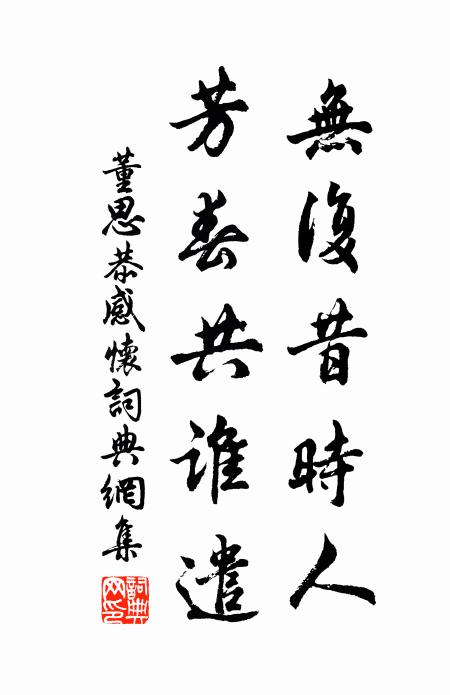 無復昔時人
芳春共誰遣
董思恭感懷詞典網集
詞典網印